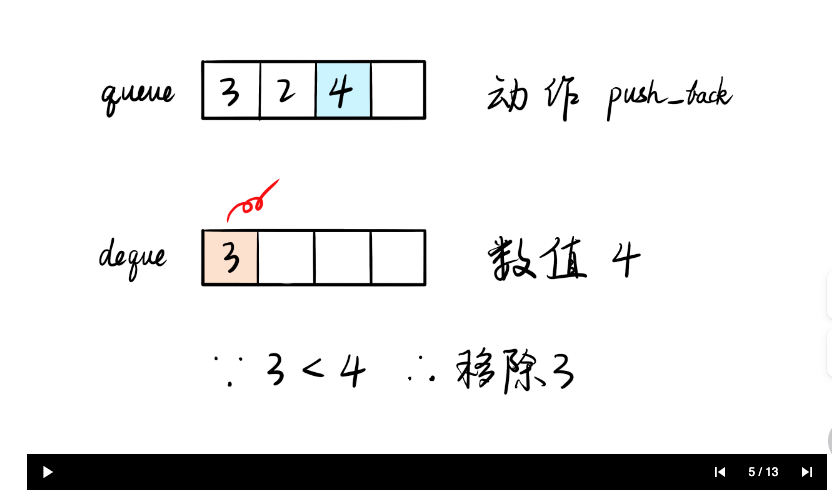 queue 3 2 4 动作 push_back
deque 3 数值 4
∵ 3 < 4 ∴ 移除3
5 / 13